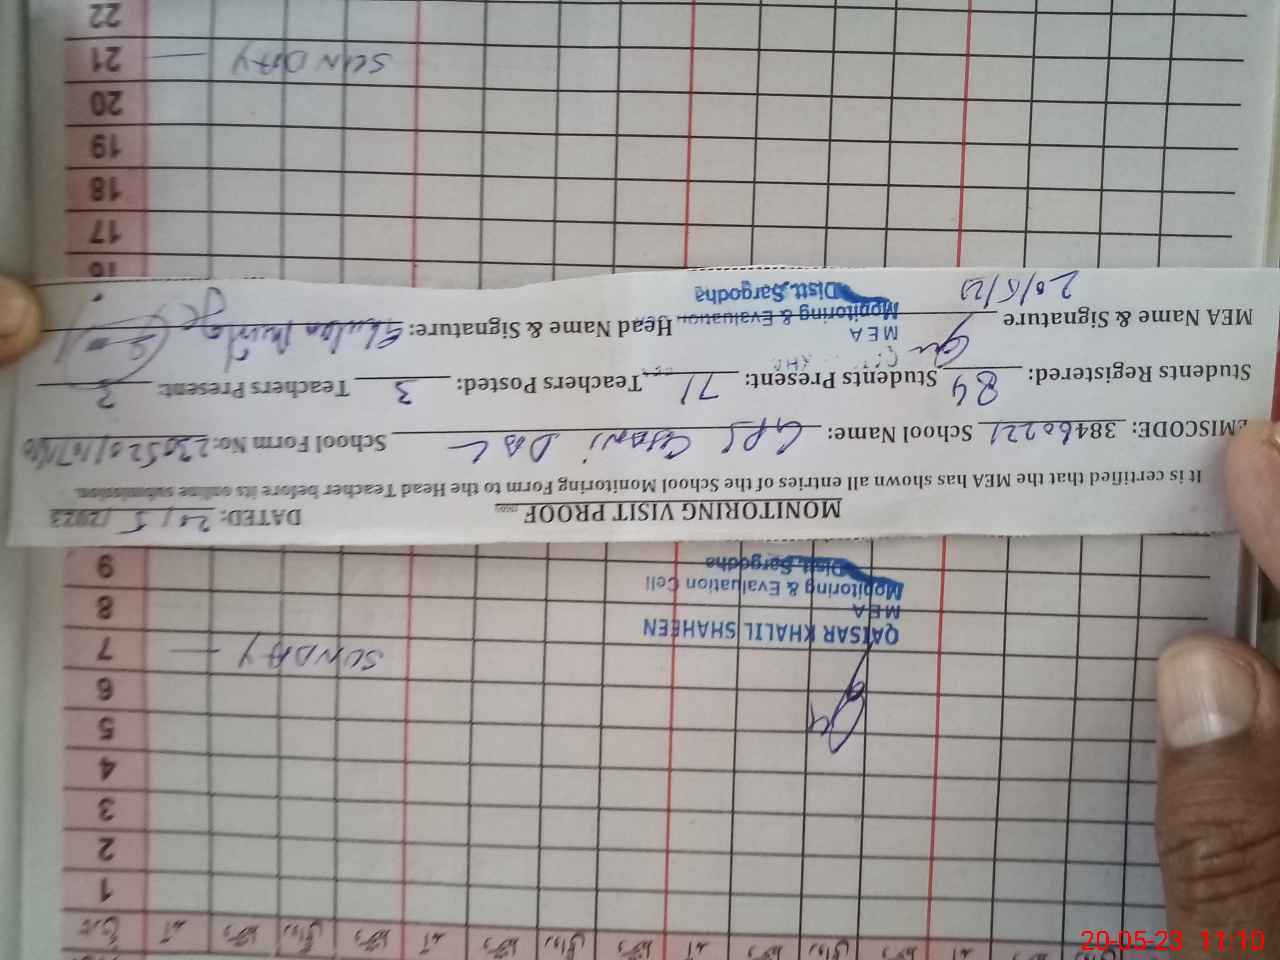 MONITORING VISIT PROOF DATED: 20/5/2023
It is certified that the MEA has shown all entries of the School Monitoring Form to the Head Teacher before its online submission.
EMISCODE: 38460221 School Name: GPS School Form No:
Students Registered: 84 Students Present: 71 Teachers Posted: 3 Teachers Present: 3
MEA Name & Signature Head Name & Signature:
20/5/23
MEA
Monitoring & Evaluation
Distt. Sargodha
QAISAR KHALIL SHAHEEN
MEA
Monitoring & Evaluation Cell
Distt. Sargodha
1
2
3
4
5
6
7 SUNDAY
8
9
16
17
18
19
20
21 SUNDAY
22
20-05-23 11:10